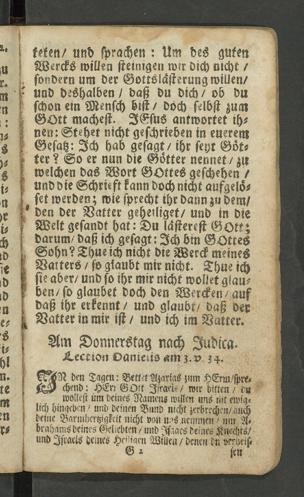 teten / und sprachen: Um des guten
Wercks willen steinigen wir dich nicht /
sondern um der Gottslästerung willen /
und deshalben / daß du dich / ob du
schon ein Mensch bist / doch selbst zum
GOtt machest. JEsus antwortet ih-
nen: Stehet nicht geschrieben in euerem
Gesatz: Ich hab gesagt / ihr seyt Göt-
ter? So er nun die Götter nennet / zu
welchen das Wort GOttes geschehen /
und die Schrifft kann doch nicht aufgelö-
set werden; wie sprecht ihr dann zu dem /
den der Vatter geheiliget / und in die
Welt gesandt hat: Du lästerest GOtt;
darum / daß ich gesagt: Ich bin GOttes
Sohn? Thue ich nicht die Werck meines
Vatters / so glaubt mir nicht. Thue ich
sie aber / und so ihr mir nicht wollet glau-
ben / so glaubet doch den Wercken / auf
daß ihr erkennt / und glaubt / daß der
Vatter in mir ist / und ich im Vatter.
Am Donnerstag nach Judica.
Lection Danielis am 3. v. 34.
IN den Tagen: Bettet Azarias zum HErrn / spre-
chend: HErr GOtt Israels / wir bitten / du
wollest um deines Namens willen uns nit ewig-
lich hingeben / und deinen Bund nicht zerbrechen / auch
deine Barmhertzigkeit nicht von uns nemmen / um A-
brahams deines Geliebten / und Isaacs deines Knechts /
und Israels deines Heiligen Willen / denen du verheis-
G 2 sen